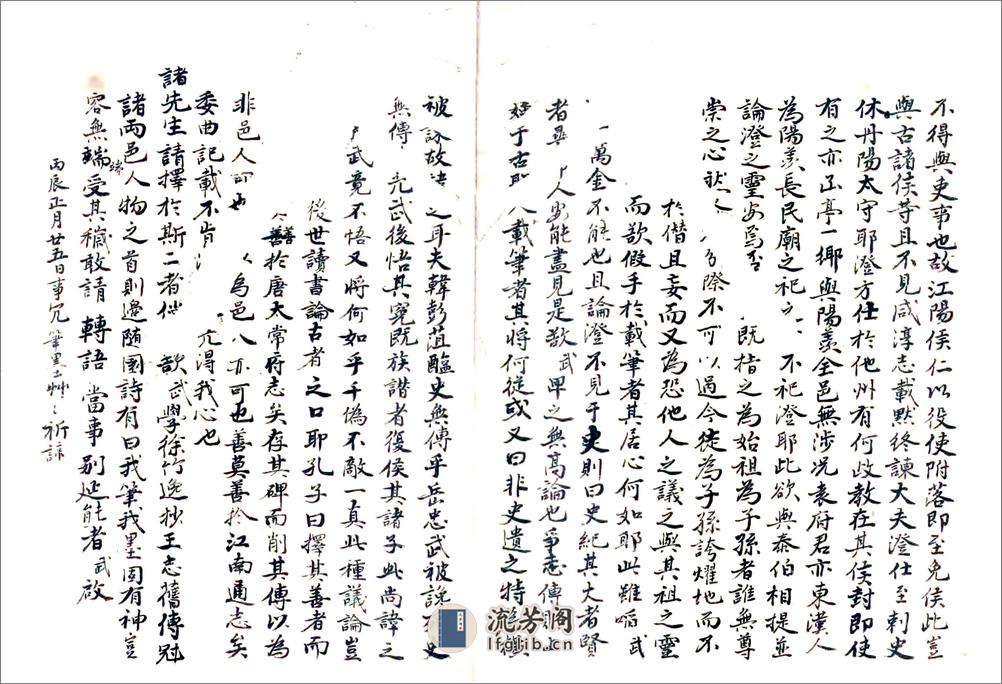 不得與吏事也故江陽侯仁以役使附落即至免侯此豈
與古諸侯等且不見咸淳志載默終諫大夫澄仕至刺史
休丹陽太守耶澄方仕於他州有何政教在其侯封即使
有之亦山亭一鄉與陽羨全邑無涉况袁府君亦東漢人
為陽羨長民廟之祀之 不祀澄耶此欲與泰伯相提並
論澄之靈安焉否 既指之為始祖為子孫者誰無尊
崇之心狀 際不可以過今徒為子孫誇燿地而不
於僭且妄而又為恐他人之議之與其祖之靈
而欲假手於載筆者其居心何如耶此雖啗武
萬金不能也且論澄不見于史則曰史紀其大者賢
者畢 人安能盡見是歘武甲之無高論也爭志傳
始于古 載筆者其將何從或又曰非史遺之特
被詠故 之耳夫韓彭菹醢史無傳乎岳忠武被 史
無傳 光武後悟其冤既族譖者復侯其諸子此尚諱之
武竟不悟又將何如乎千偽不敵一真此種議論豈
後世讀書論古者之口耶孔子曰擇其善者而
善於唐太常府志矣存其碑而削其傳以為
非邑人可也 為邑人亦可也善莫善於江南通志矣
委曲記載不肯 先得我心也
諸先生請擇於斯二者 歘武學徐竹逸抄王志舊傳冠
諸兩邑人物之首則邊隨園詩有曰我筆我墨固有神豈
容無端受其穢敢請 轉語 當事別延能者武啟
丙辰正月廿五日事冗筆墨草草祈諒
流芳閣
lfglib.cn